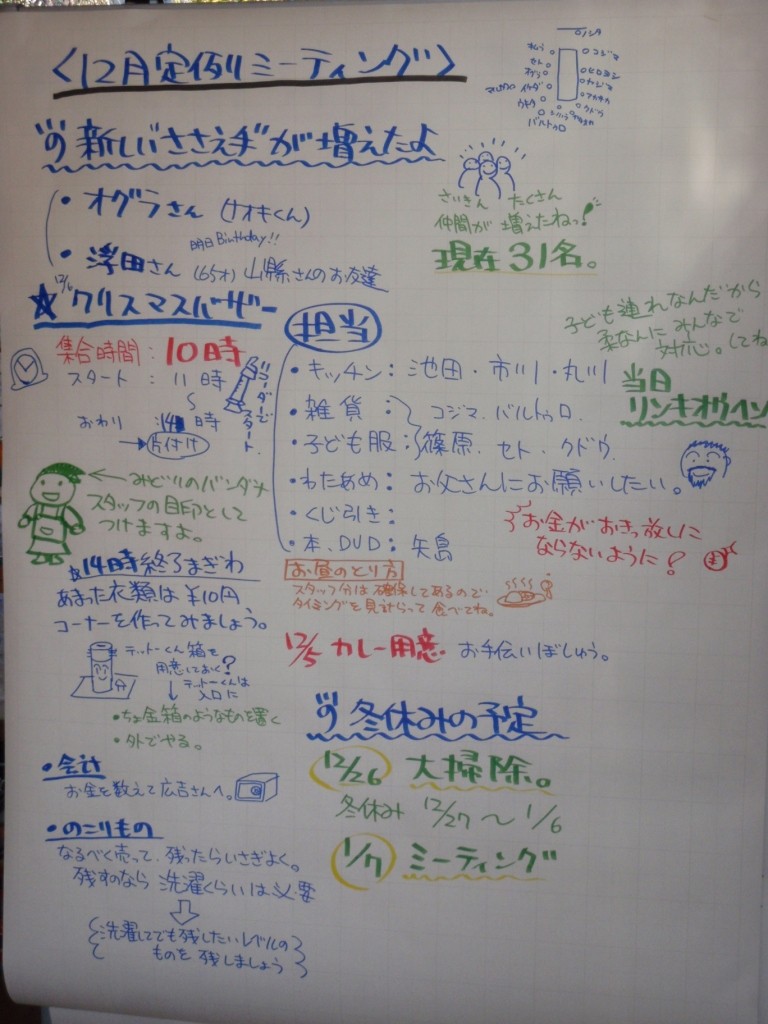 〈12月定例ミーティング〉
コジマ
セト
ヒロヨシ
オグラ
イケダ
クドウ
バルトゥロ
新しい"ささえ手"が増えたよ
・オグラさん (ナオキくん)
明日Birthday!!
・浮田さん (65才) 山縣さんのお友達
さいきん たくさん
仲間が 増えたねっ!
現在31名。
☆クリスマスバザー
12/6
集合時間:10時
スタート : 11時
〜
おわり :14時
→片付け
リコーダーで
スタート
←みどりのバンダナ
スタッフの目印として
つけますよ。
担当
・キッチン: 池田・市川・丸川
・雑貨:
・子ども服:
コジマ.バルトゥロ.
篠原.セト.クドウ.
・わたあめ: お父さんにお願いしたい。
・くじ引き:
・本、DVD: 矢島
子ども連れなんだから
柔なんにみんなで
対応。してね
当日
リンキオウヘン
お金がおきっ放しに
ならないように!
☆14時終了まぎわ
あまった衣類は¥10円
コーナーを作ってみましょう。
テットーくん箱を
用意しておく?
↓テットーくんは
入口に
・ちょ金箱のようなものを置く
・外でやる。
お昼のとり方
スタッフ分は確保してあるので、
タイミングを見計らって食べてね。
12/5 カレー用意 お手伝いぼしゅう。
・会計
お金を数えて広吉さんへ。
・のこりもの
なるべく売って、残ったらいさぎよく。
残すのなら 洗濯くらいは必要
洗濯してでも残したいレベルの
ものを残しましょう
冬休みの予定
12/26 大掃除。
冬休み 12/27〜1/6
1/7 ミーティング